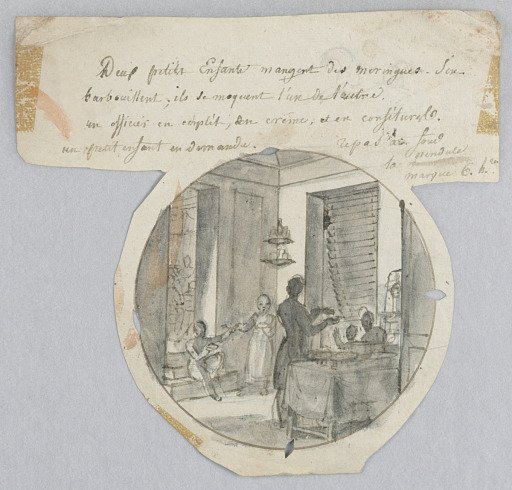 Deux petits Enfants mangent des meringues. S'en
barbouillent, ils se moquent l'un de l'autre
un officier en complit, en crême, et en confitures.
un petit enfant en demande. au fond
la pendule
marque 6. h.